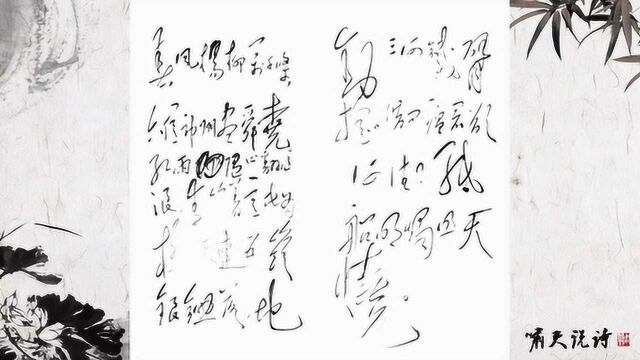 春风杨柳万千条
六億神州尽舜尧
红雨随心翻作
浪青山着意化为
桥天连五岭
银锄落地
动三河铁臂
摇借问瘟君欲
何往纸
船明烛照天
烧
啸天说诗